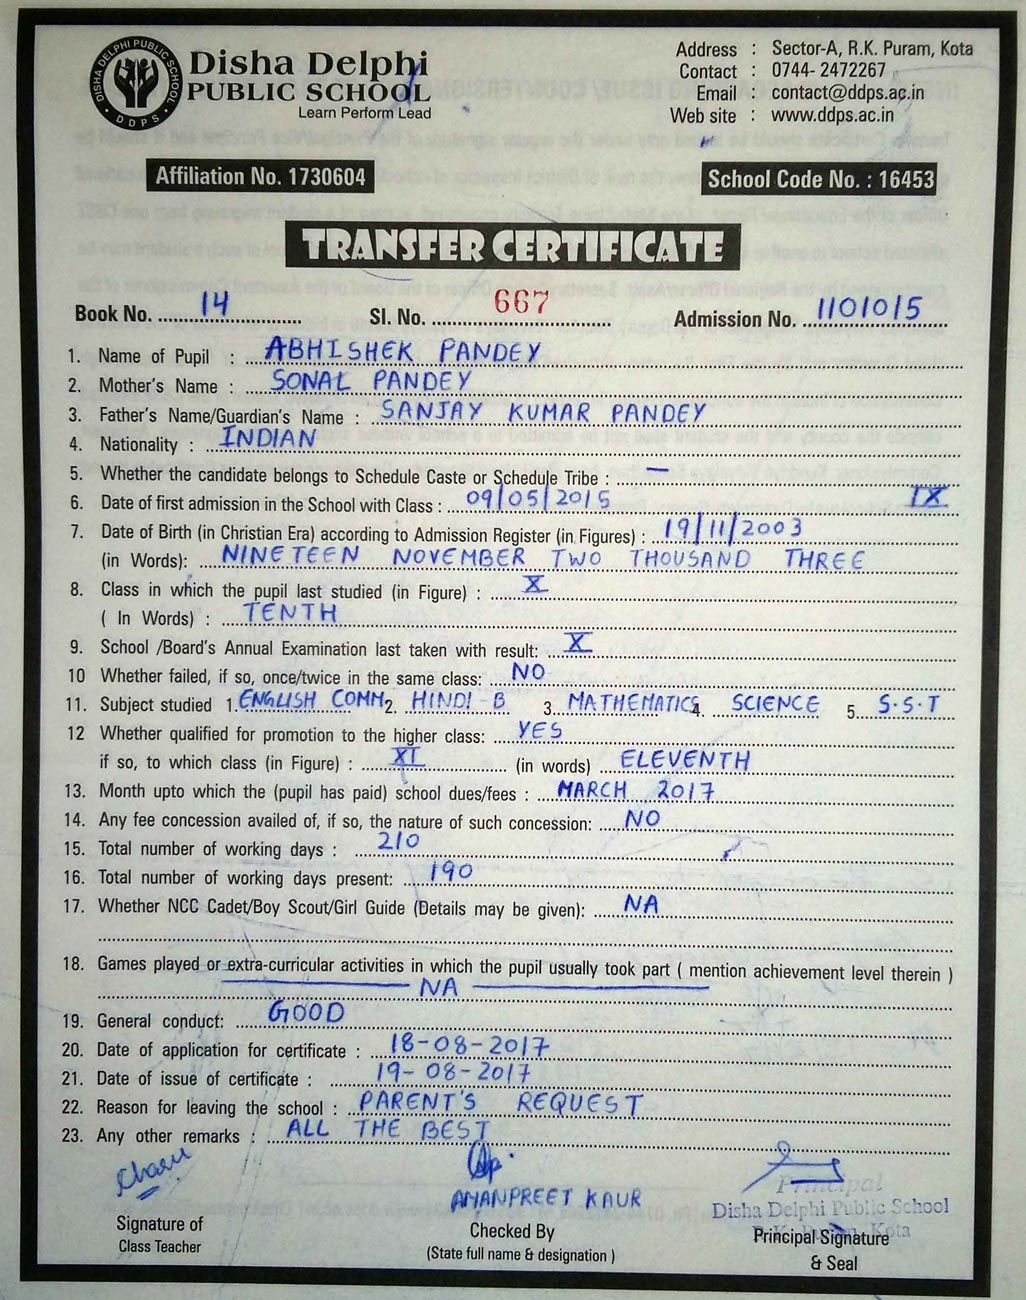 DISHA DELPHI PUBLIC SCHOOL
DDPS
Disha Delphi
PUBLIC SCHOOL
Learn Perform Lead
Address : Sector-A, R.K. Puram, Kota
Contact : 0744- 2472267
Email : contact@ddps.ac.in
Web site : www.ddps.ac.in
Affiliation No. 1730604 School Code No. : 16453
TRANSFER CERTIFICATE
Book No. 14 Sl. No. 667 Admission No. 1101015
1. Name of Pupil : ABHISHEK PANDEY
2. Mother's Name : SONAL PANDEY
3. Father's Name/Guardian's Name : SANJAY KUMAR PANDEY
4. Nationality : INDIAN
5. Whether the candidate belongs to Schedule Caste or Schedule Tribe : —
6. Date of first admission in the School with Class : 09/05/2015 IX
7. Date of Birth (in Christian Era) according to Admission Register (in Figures) : 19/11/2003
(in Words): NINETEEN NOVEMBER TWO THOUSAND THREE
8. Class in which the pupil last studied (in Figure) : X
( In Words) : TENTH
9. School /Board's Annual Examination last taken with result: X
10 Whether failed, if so, once/twice in the same class: NO
11. Subject studied 1. ENGLISH COMM 2. HINDI-B 3. MATHEMATICS 4. SCIENCE 5. S.S.T
12 Whether qualified for promotion to the higher class: YES
if so, to which class (in Figure) : XI (in words) ELEVENTH
13. Month upto which the (pupil has paid) school dues/fees : MARCH 2017
14. Any fee concession availed of, if so, the nature of such concession: NO
15. Total number of working days : 210
16. Total number of working days present: 190
17. Whether NCC Cadet/Boy Scout/Girl Guide (Details may be given): NA
18. Games played or extra-curricular activities in which the pupil usually took part ( mention achievement level therein )
NA
19. General conduct: GOOD
20. Date of application for certificate : 18-08-2017
21. Date of issue of certificate : 19-08-2017
22. Reason for leaving the school : PARENT'S REQUEST
23. Any other remarks : ALL THE BEST
Charu
AMANPREET KAUR
Principal
Disha Delphi Public School
R.K. Puram, Kota
Signature of
Class Teacher
Checked By
(State full name & designation )
Principal Signature
& Seal